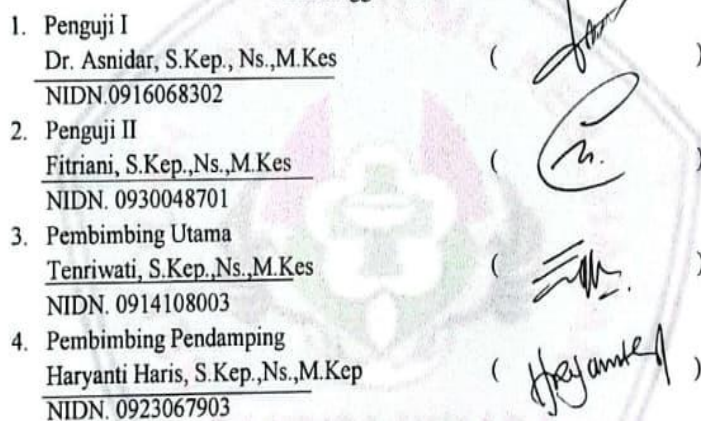 1. Penguji I
Dr. Asnidar, S.Kep., Ns.,M.Kes ( )
NIDN.0916068302
2. Penguji II
Fitriani, S.Kep.,Ns.,M.Kes ( )
NIDN. 0930048701
3. Pembimbing Utama
Tenriwati, S.Kep.,Ns.,M.Kes ( )
NIDN. 0914108003
4. Pembimbing Pendamping
Haryanti Haris, S.Kep.,Ns.,M.Kep ( )
NIDN. 0923067903